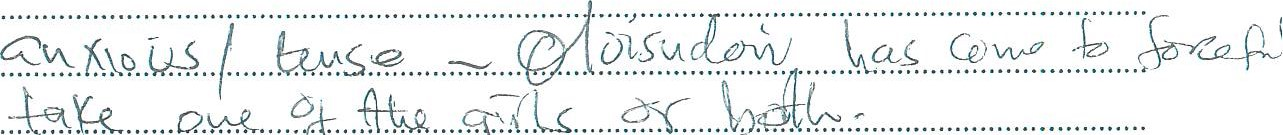 anxious / tense - Oloisudori has come to forceful
take one of the girls or both.